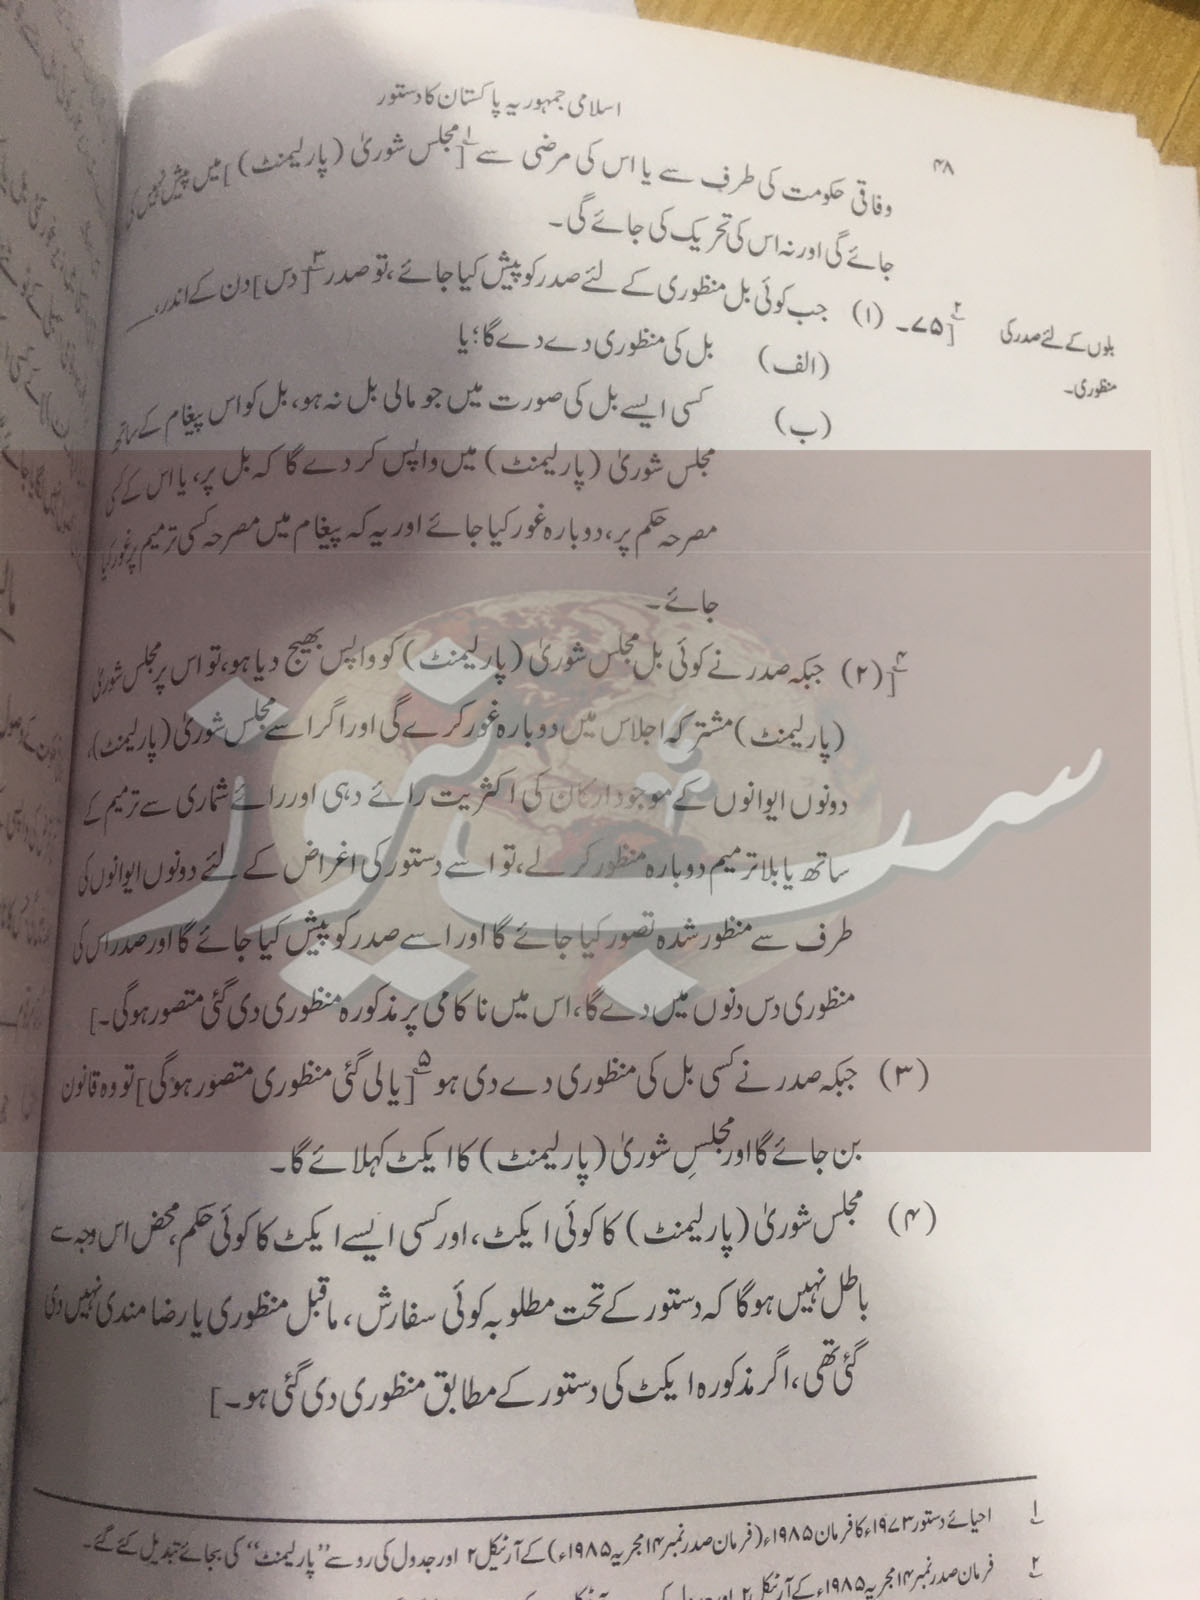 اسلامی جمہوریہ پاکستان کا دستور
۴۸
وفاقی حکومت کی طرف سے یا اس کی مرضی سے ۱[مجلس شوریٰ (پارلیمنٹ)] میں پیش نہیں کی
جائے گی اور نہ اس کی تحریک کی جائے گی۔
بلوں کے لئے صدر کی
منظوری۔
۲[۷۵۔ (۱) جب کوئی بل منظوری کے لئے صدر کو پیش کیا جائے، تو صدر ۳[دس] دن کے اندر،
(الف) بل کی منظوری دے دے گا؛ یا
(ب) کسی ایسے بل کی صورت میں جو مالی بل نہ ہو، بل کو اس پیغام کے ساتھ
مجلس شوریٰ (پارلیمنٹ) میں واپس کر دے گا کہ بل پر، یا اس کے کسی
مصرحہ حکم پر، دوبارہ غور کیا جائے اور یہ کہ پیغام میں مصرحہ کسی ترمیم پر غور کیا
جائے۔
۴[(۲) جبکہ صدر نے کوئی بل مجلس شوریٰ (پارلیمنٹ) کو واپس بھیج دیا ہو، تو اس پر مجلس شوریٰ
(پارلیمنٹ) مشترکہ اجلاس میں دوبارہ غور کرے گی اور اگر اسے مجلس شوریٰ (پارلیمنٹ)،
دونوں ایوانوں کے موجود ارکان کی اکثریت رائے دہی اور رائے شماری سے ترمیم کے
ساتھ یا بلا ترمیم دوبارہ منظور کر لے، تو اسے دستور کی اغراض کے لئے دونوں ایوانوں کی
طرف سے منظور شدہ تصور کیا جائے گا اور اسے صدر کو پیش کیا جائے گا اور صدر اس کی
منظوری دس دنوں میں دے گا، اس میں ناکامی پر مذکورہ منظوری دی گئی متصور ہوگی۔]
(۳) جبکہ صدر نے کسی بل کی منظوری دے دی ہو ۵[یا لی گئی منظوری متصور ہوگی] تو وہ قانون
بن جائے گا اور مجلسِ شوریٰ (پارلیمنٹ) کا ایکٹ کہلائے گا۔
(۴) مجلس شوریٰ (پارلیمنٹ) کا کوئی ایکٹ، اور کسی ایسے ایکٹ کا کوئی حکم، محض اس وجہ سے
باطل نہیں ہوگا کہ دستور کے تحت مطلوبہ کوئی سفارش، ماقبل منظوری یا رضا مندی نہیں دی
گئی تھی، اگر مذکورہ ایکٹ کی دستور کے مطابق منظوری دی گئی ہو۔]
۱ احیائے دستور ۱۹۷۳ء کا فرمان ۱۹۸۵ء (فرمان صدر نمبر ۱۴ مجریہ ۱۹۸۵ء) کے آرٹیکل ۲ اور جدول کی رو سے "پارلیمنٹ" کی بجائے تبدیل کئے گئے۔
۲ فرمان صدر نمبر ۱۴ مجریہ ۱۹۸۵ء کے آرٹیکل ۲ اور
سب نیوز